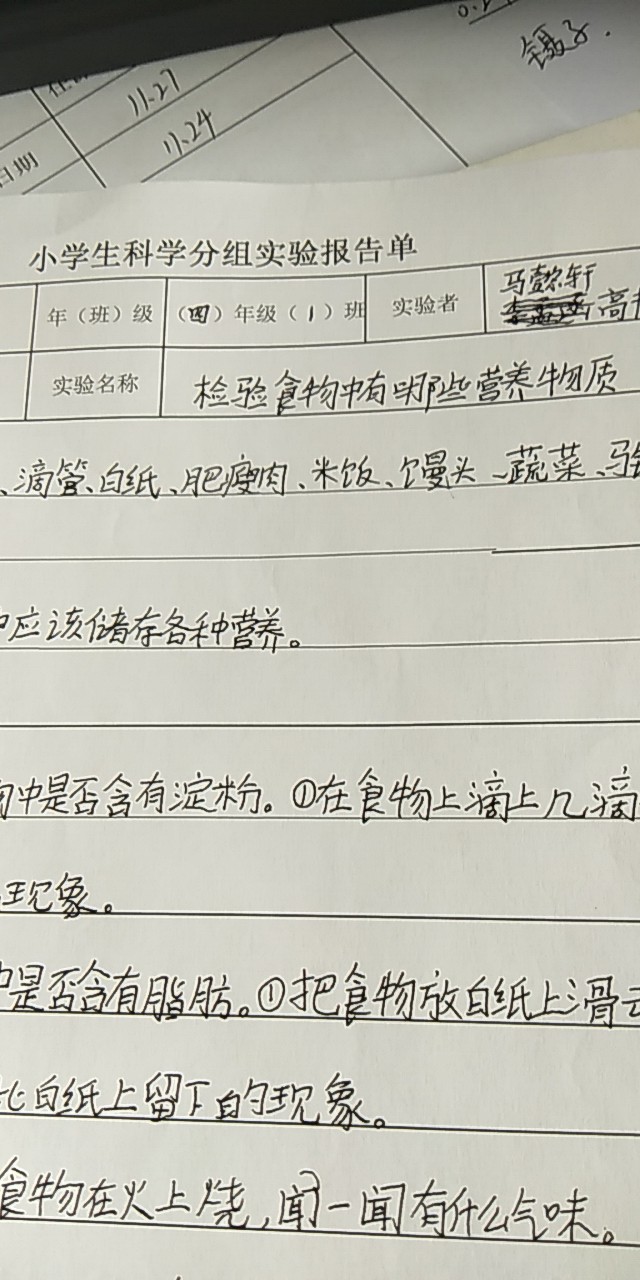 镊子.
11.27
11.24
日期
小学生科学分组实验报告单
年（班）级 （四）年级（1）班 实验者 马懿轩
高
实验名称 检验食物中有哪些营养物质
、滴管、白纸、肥瘦肉、米饭、馒头、蔬菜、
应该储存各种营养。
中是否含有淀粉。①在食物上滴上几滴
现象。
是否含有脂肪。①把食物放白纸上滑
白纸上留下的现象。
食物在火上烧，闻一闻有什么气味。